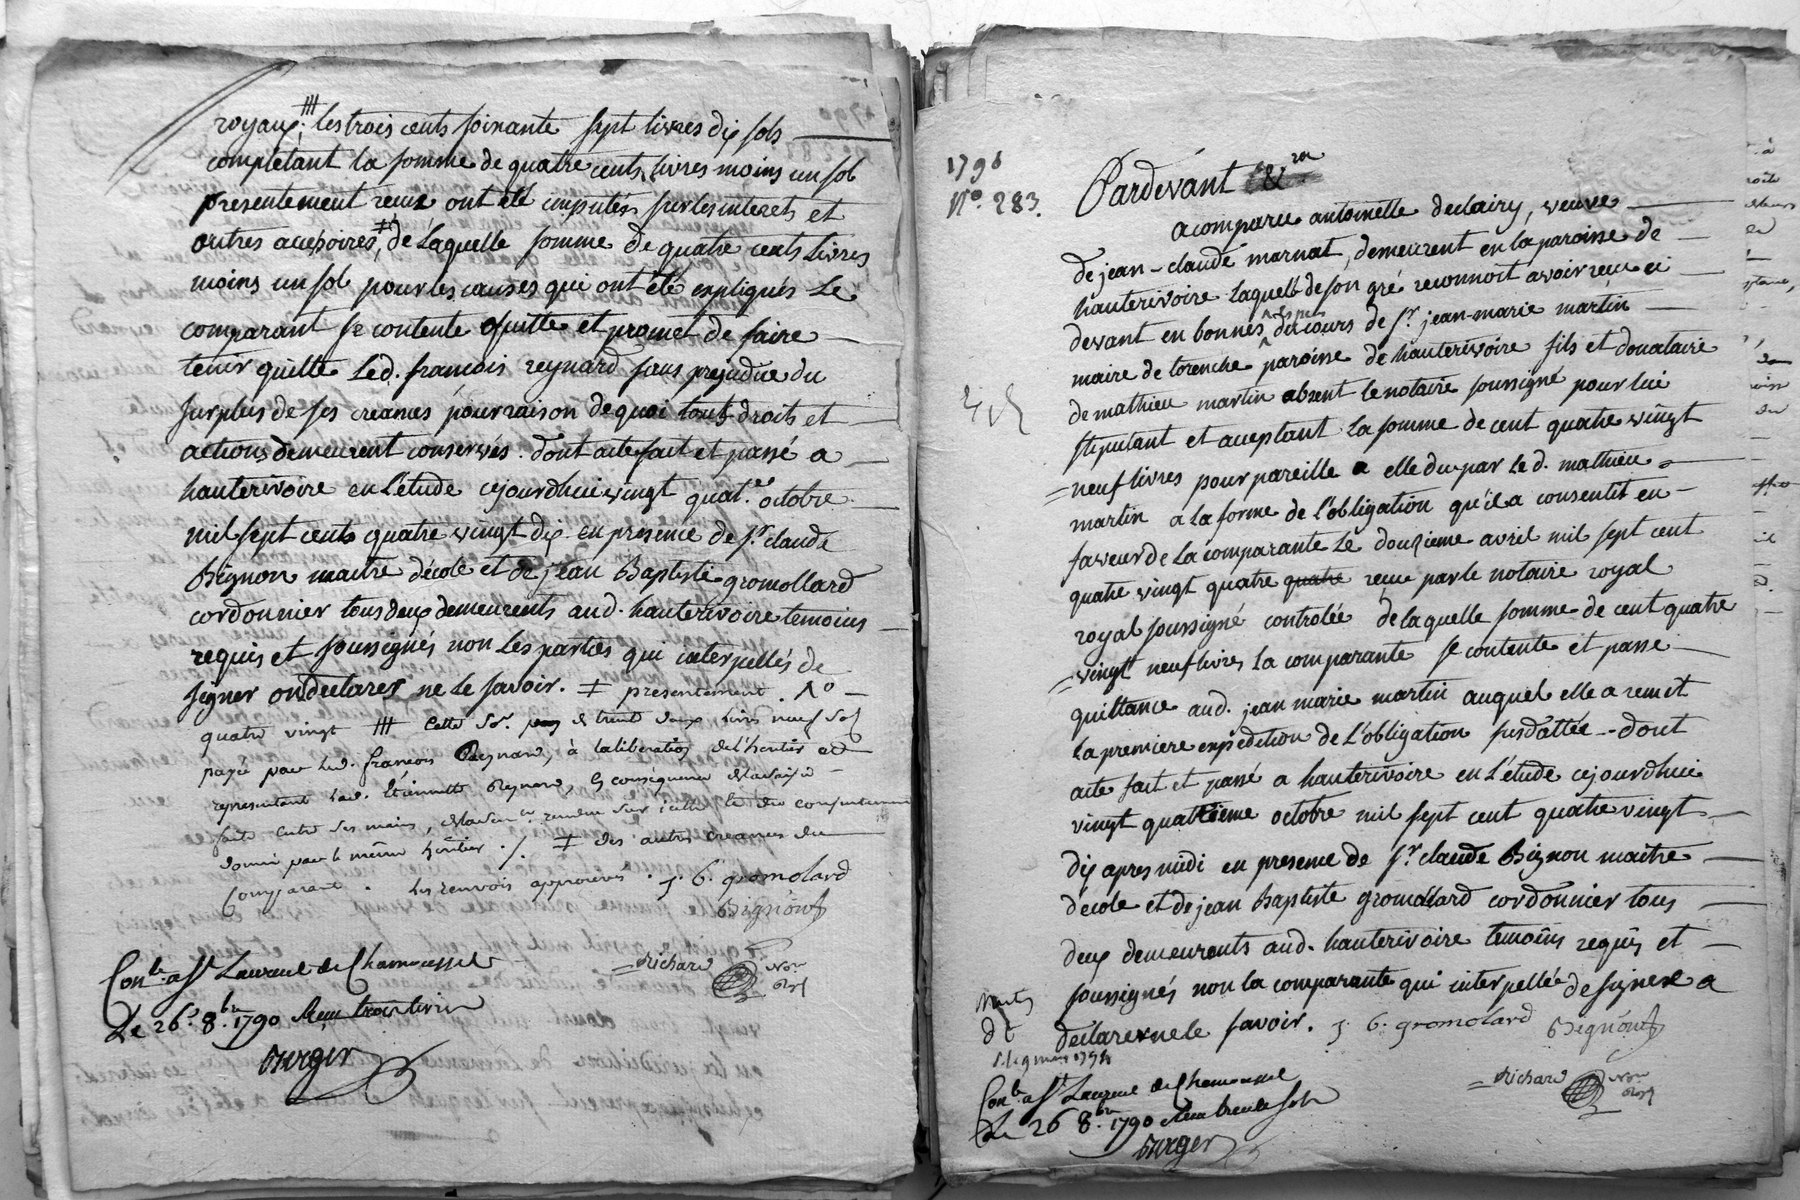 royaux; ⧻ les trois cents soixante sept livres dix sols
completant la somme de quatre cents livres moins un sol
presentement reçue ont été imputés sur les interets et
autres accessoires, ‡ de laquelle somme de quatre cents livres
moins un sol pour les causes qui ont été expliqués le
comparant se contente quitte et promet de faire
tenir quitte led. francois reynard sans prejudice du
surplus de ses creances pour raison de quoi touts droits et
actions demeurent conservés. dont acte fait et passé a
hauterivoire en l'étude cejourdhui vingt quat.e octobre
mil sept cents quatre vingt dix en presence de sr. claude
Bignon maitre d'école et de jean Baptiste gromollard
cordonnier tous deux demeurents aud. hauterivoire temoins
requis et soussignés non les parties qui interpellés de
signer ont declarer ne le savoir. ‡ presentement. No
quatre vingt ⧻ cette de trente deux livres neuf sols
payée par led. francois Reynard, à la liberation de l'hoirie et
representant lad. Etiennette Reynard, en conséquence
faite entre ses mains, sur icelle
donné par le même héritier ./. ‡ des autres creances du
comparant. les renvois approuvés. j. b. gromolard
Bignon
Conlé. a St. Laurent de Chamousset
Richard
Le 26. 8.bre 1790 Reçu trois livres
Burger
1790
No. 283.
Pardevant &
a comparu antoinette declairy, veuve
de jean-claude marnat, demeurent en la paroisse de
hauterivoire laquelle de son gré reconnoit avoir reçu ci
devant en bonnes especes du cours de sr. jean-marie martin
maire de torenche paroisse de hauterivoire fils et donataire
de mathieu martin absent le notaire soussigné pour lui
stipulant et acceptant la somme de cent quatre vingt
neuf livres pour pareille a elle due par led. mathieu
martin a la forme de l'obligation qu'il a consentit en
faveur de la comparante le douzieme avril mil sept cent
quatre vingt quatre quatre reçue par le notaire royal
royal soussigné controlée de laquelle somme de cent quatre
vingt neuf livres la comparante se contente et passe
quittance aud. jean marie martin auquel elle a remit
la premiere expedition de l'obligation susdattée - dont
acte fait et passé a hauterivoire en l'étude cejourdhui
vingt quatrieme octobre mil sept cent quatre vingt
dix apres midi en presence de sr. claude Bignon maitre
d'école et de jean Baptiste gromollard cordonnier tous
deux demeurents aud. hauterivoire temoins requis et
soussignés non la comparante qui interpellée de signer a
declarer ne le savoir. j. b. gromolard Bignon
Richard
Conlé. a St. Laurent de Chamousset
Le 26 8.bre 1790 Reçu trente sols
Burger